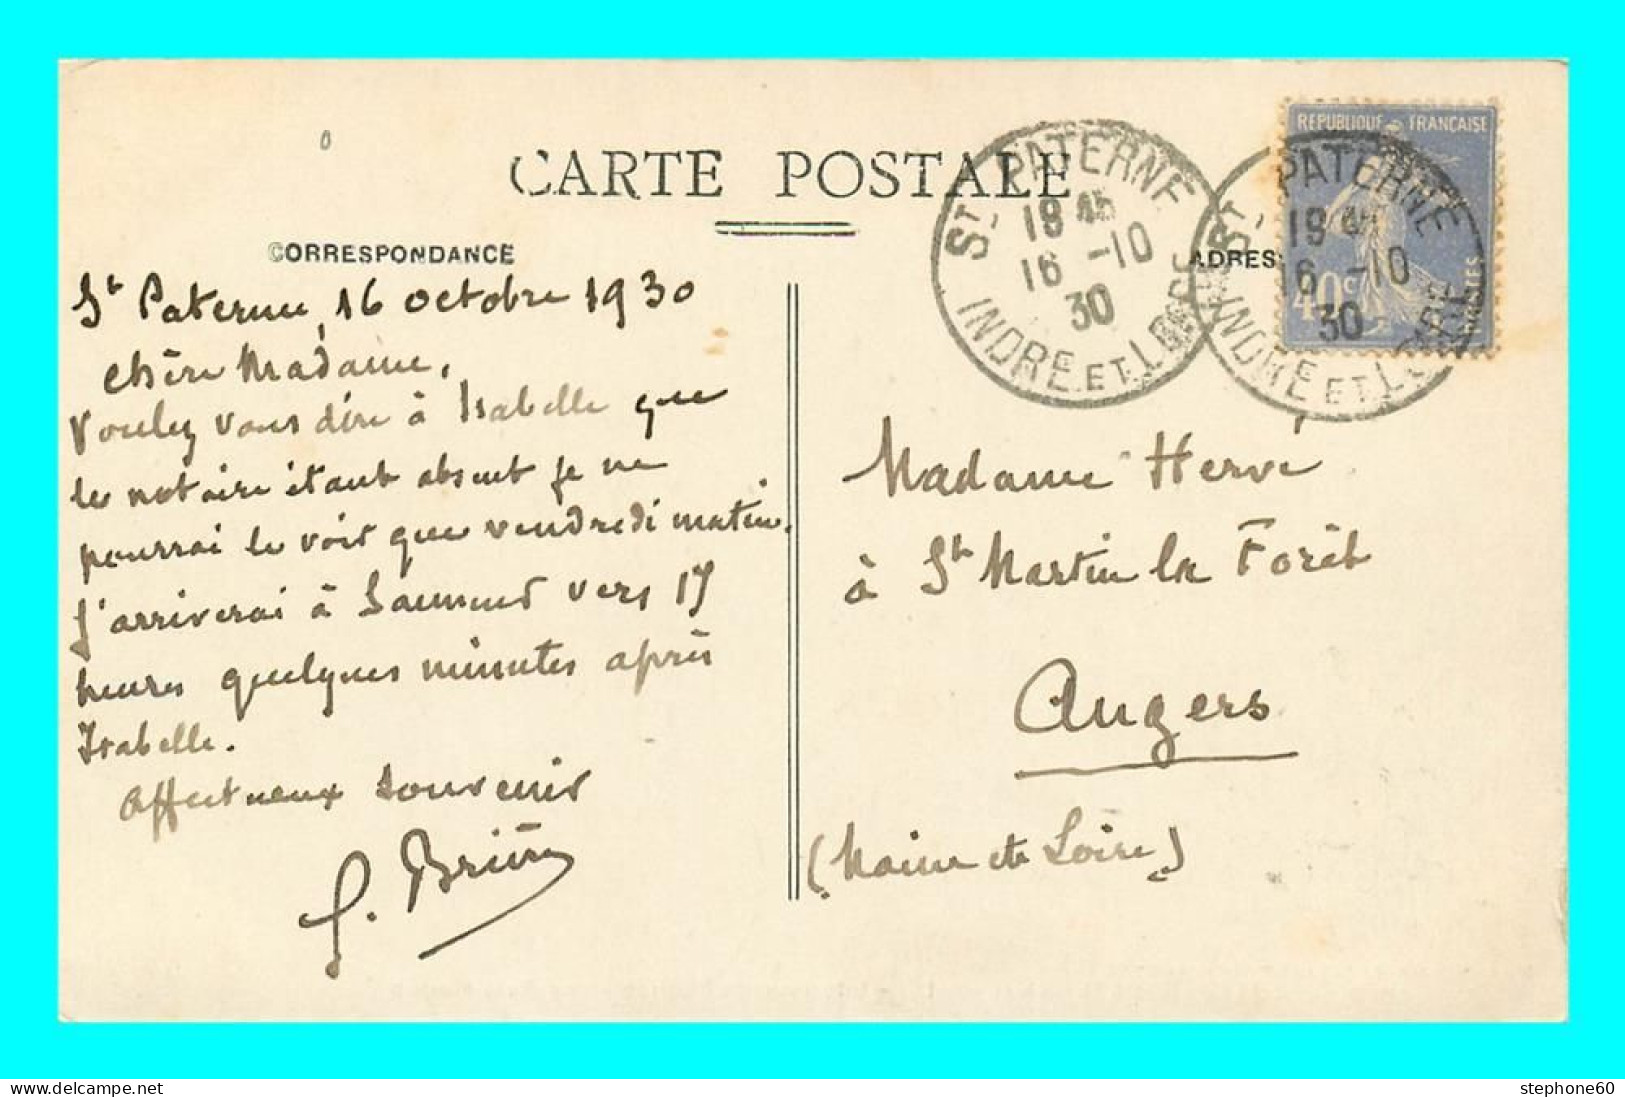 CARTE POSTALE
CORRESPONDANCE
St Paterne, 16 octobre 1930
Chère Madame,
Voulez vous dire à Isabelle que
le notaire étant absent je ne
pourrai le voir que vendredi matin.
J'arriverai à Saumur vers 17
heures quelques minutes après
Isabelle.
Affectueux souvenir
Brière
ST PATERNE
18 45
16 -10
30
INDRE ET LOIRE
ST PATERNE
18 45
16 -10
30
INDRE ET LOIRE
REPUBLIQUE FRANÇAISE
40c
POSTES
ADRESSE
Madame Hervé
à St Martin la Forêt
Angers
(Maine et Loire)
stephone60